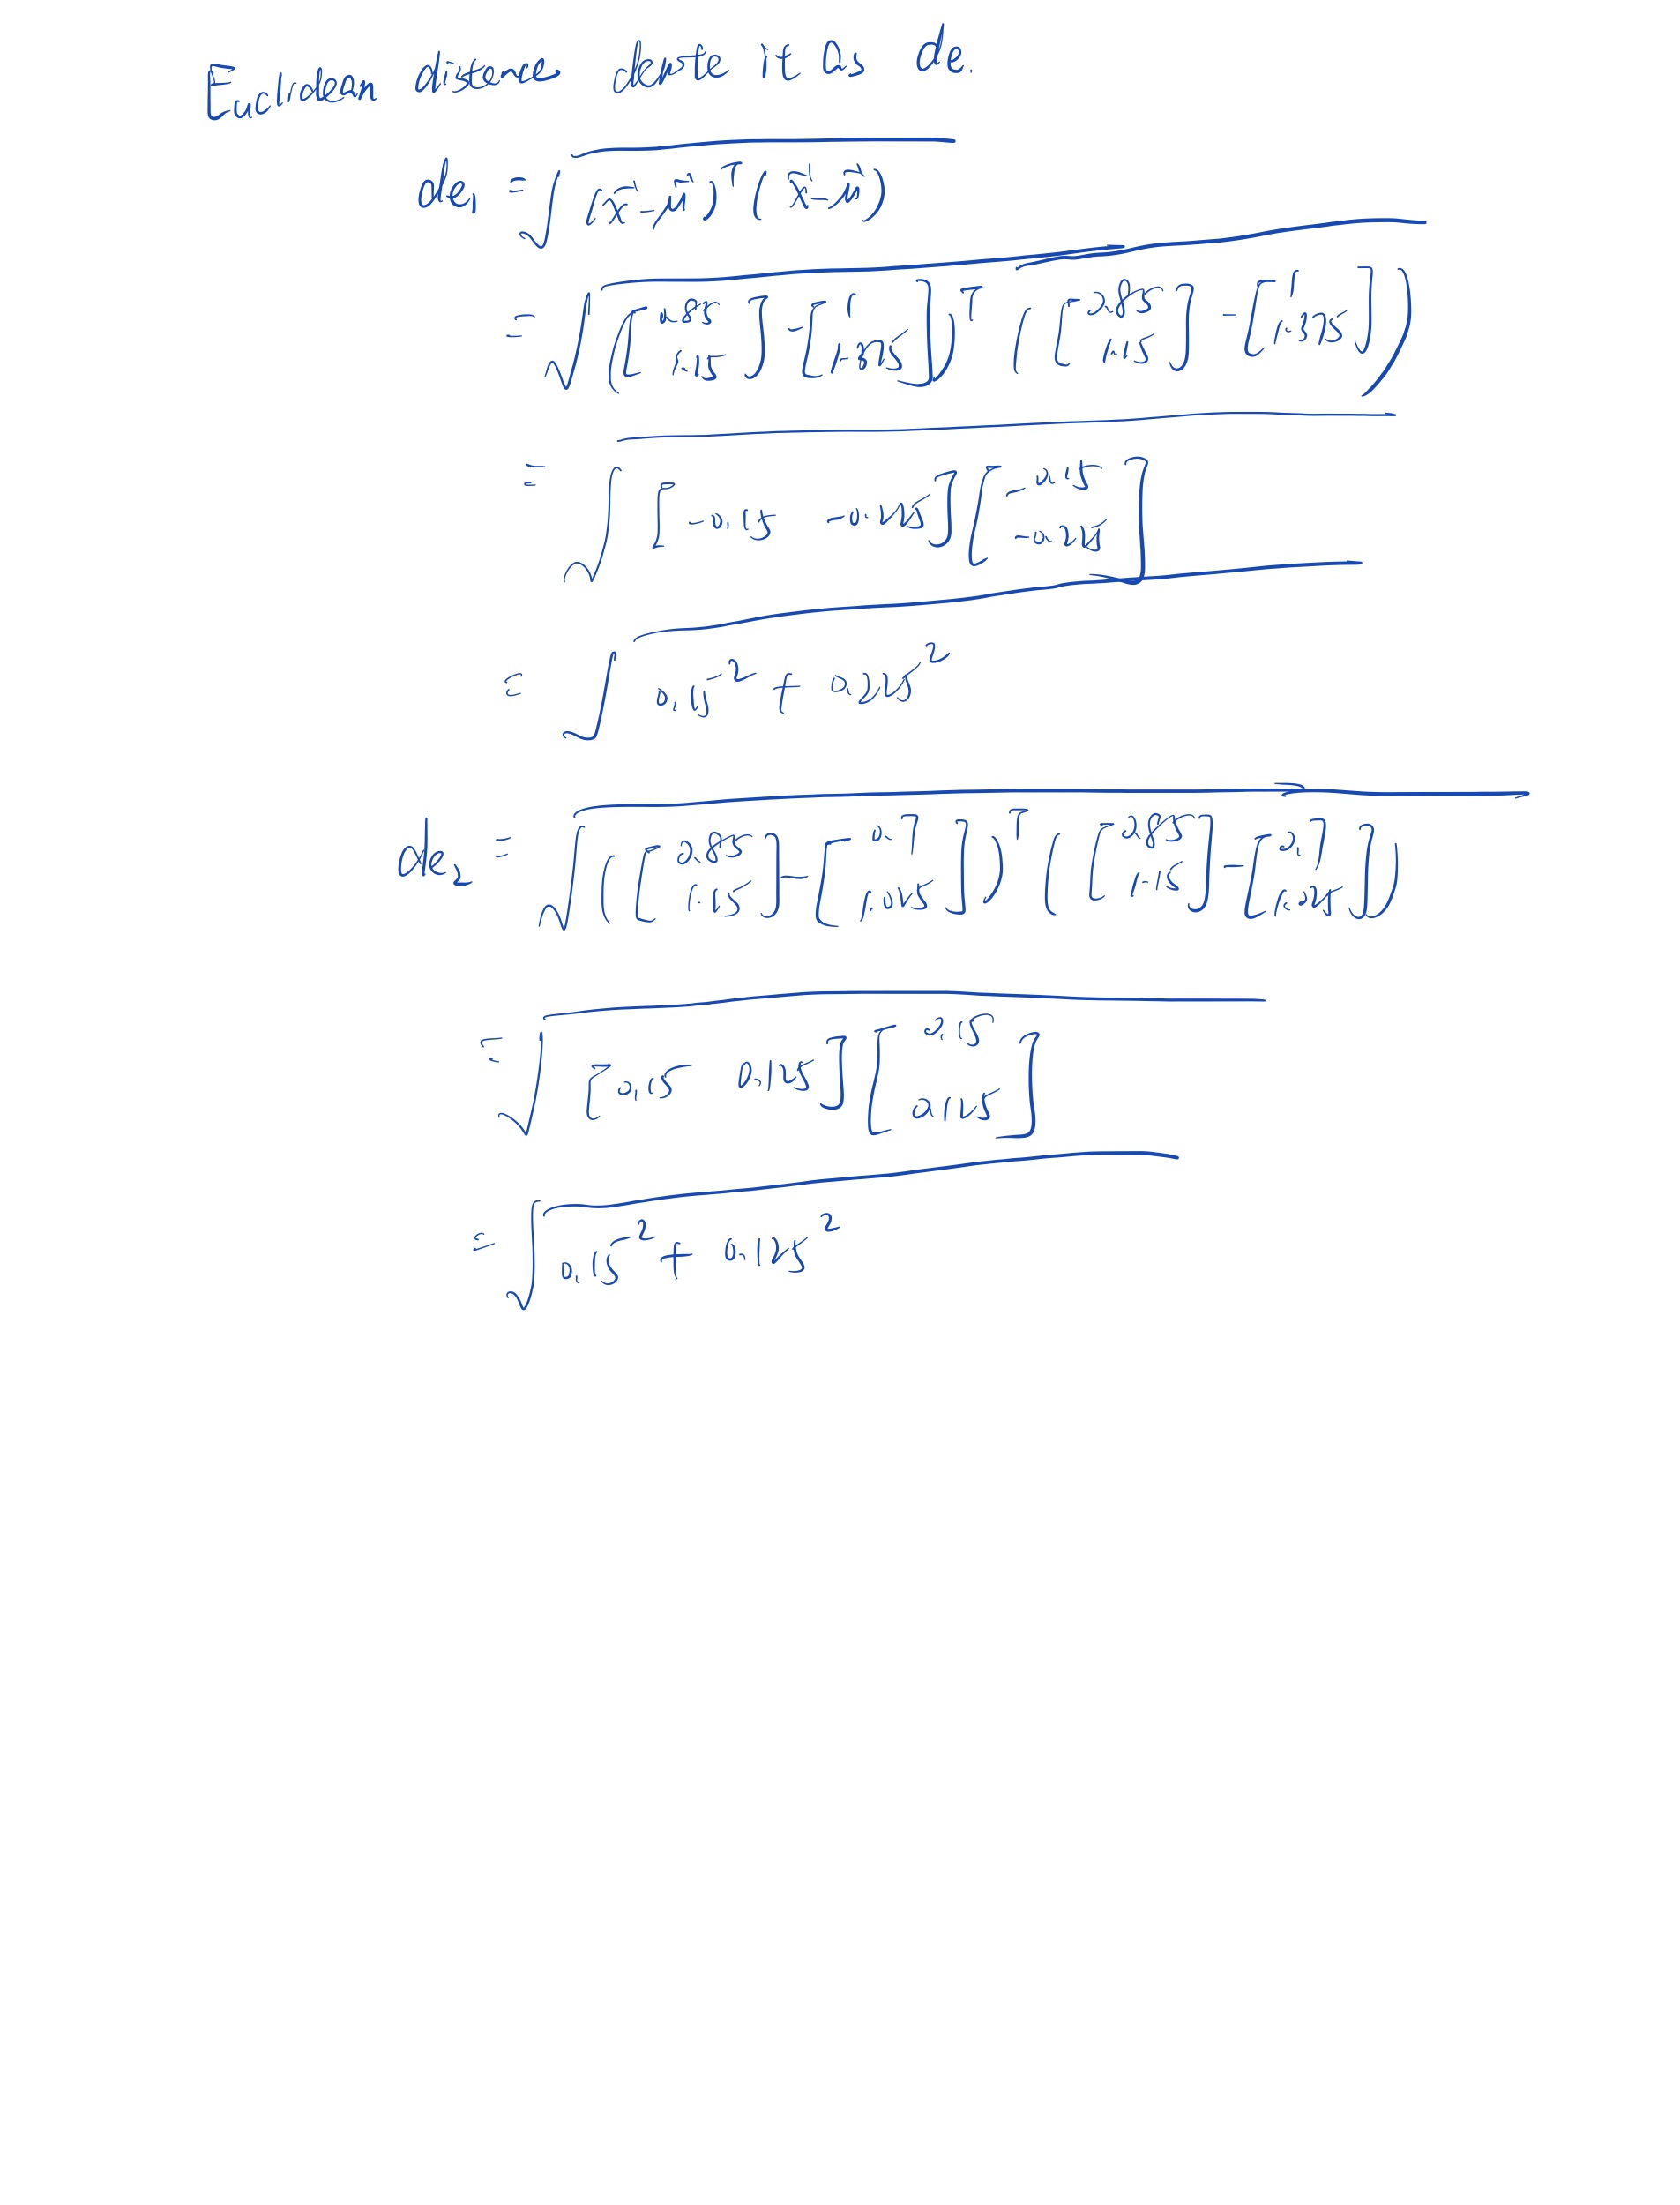 Euclidean distance denote it as de.
de₁ = √((x⃗-μ⃗)ᵀ(x⃗-μ⃗))
= √(([0.85 1.15] - [1 1.375])ᵀ([0.85 1.15] - [1 1.375]))
= √([-0.15 -0.225][-0.15 -0.225])
= √(0.15² + 0.225²)
de₂ = √(([0.85 1.15] - [0.7 1.025])ᵀ([0.85 1.15] - [0.7 1.025]))
= √([0.15 0.125][0.15 0.125])
= √(0.15² + 0.125²)